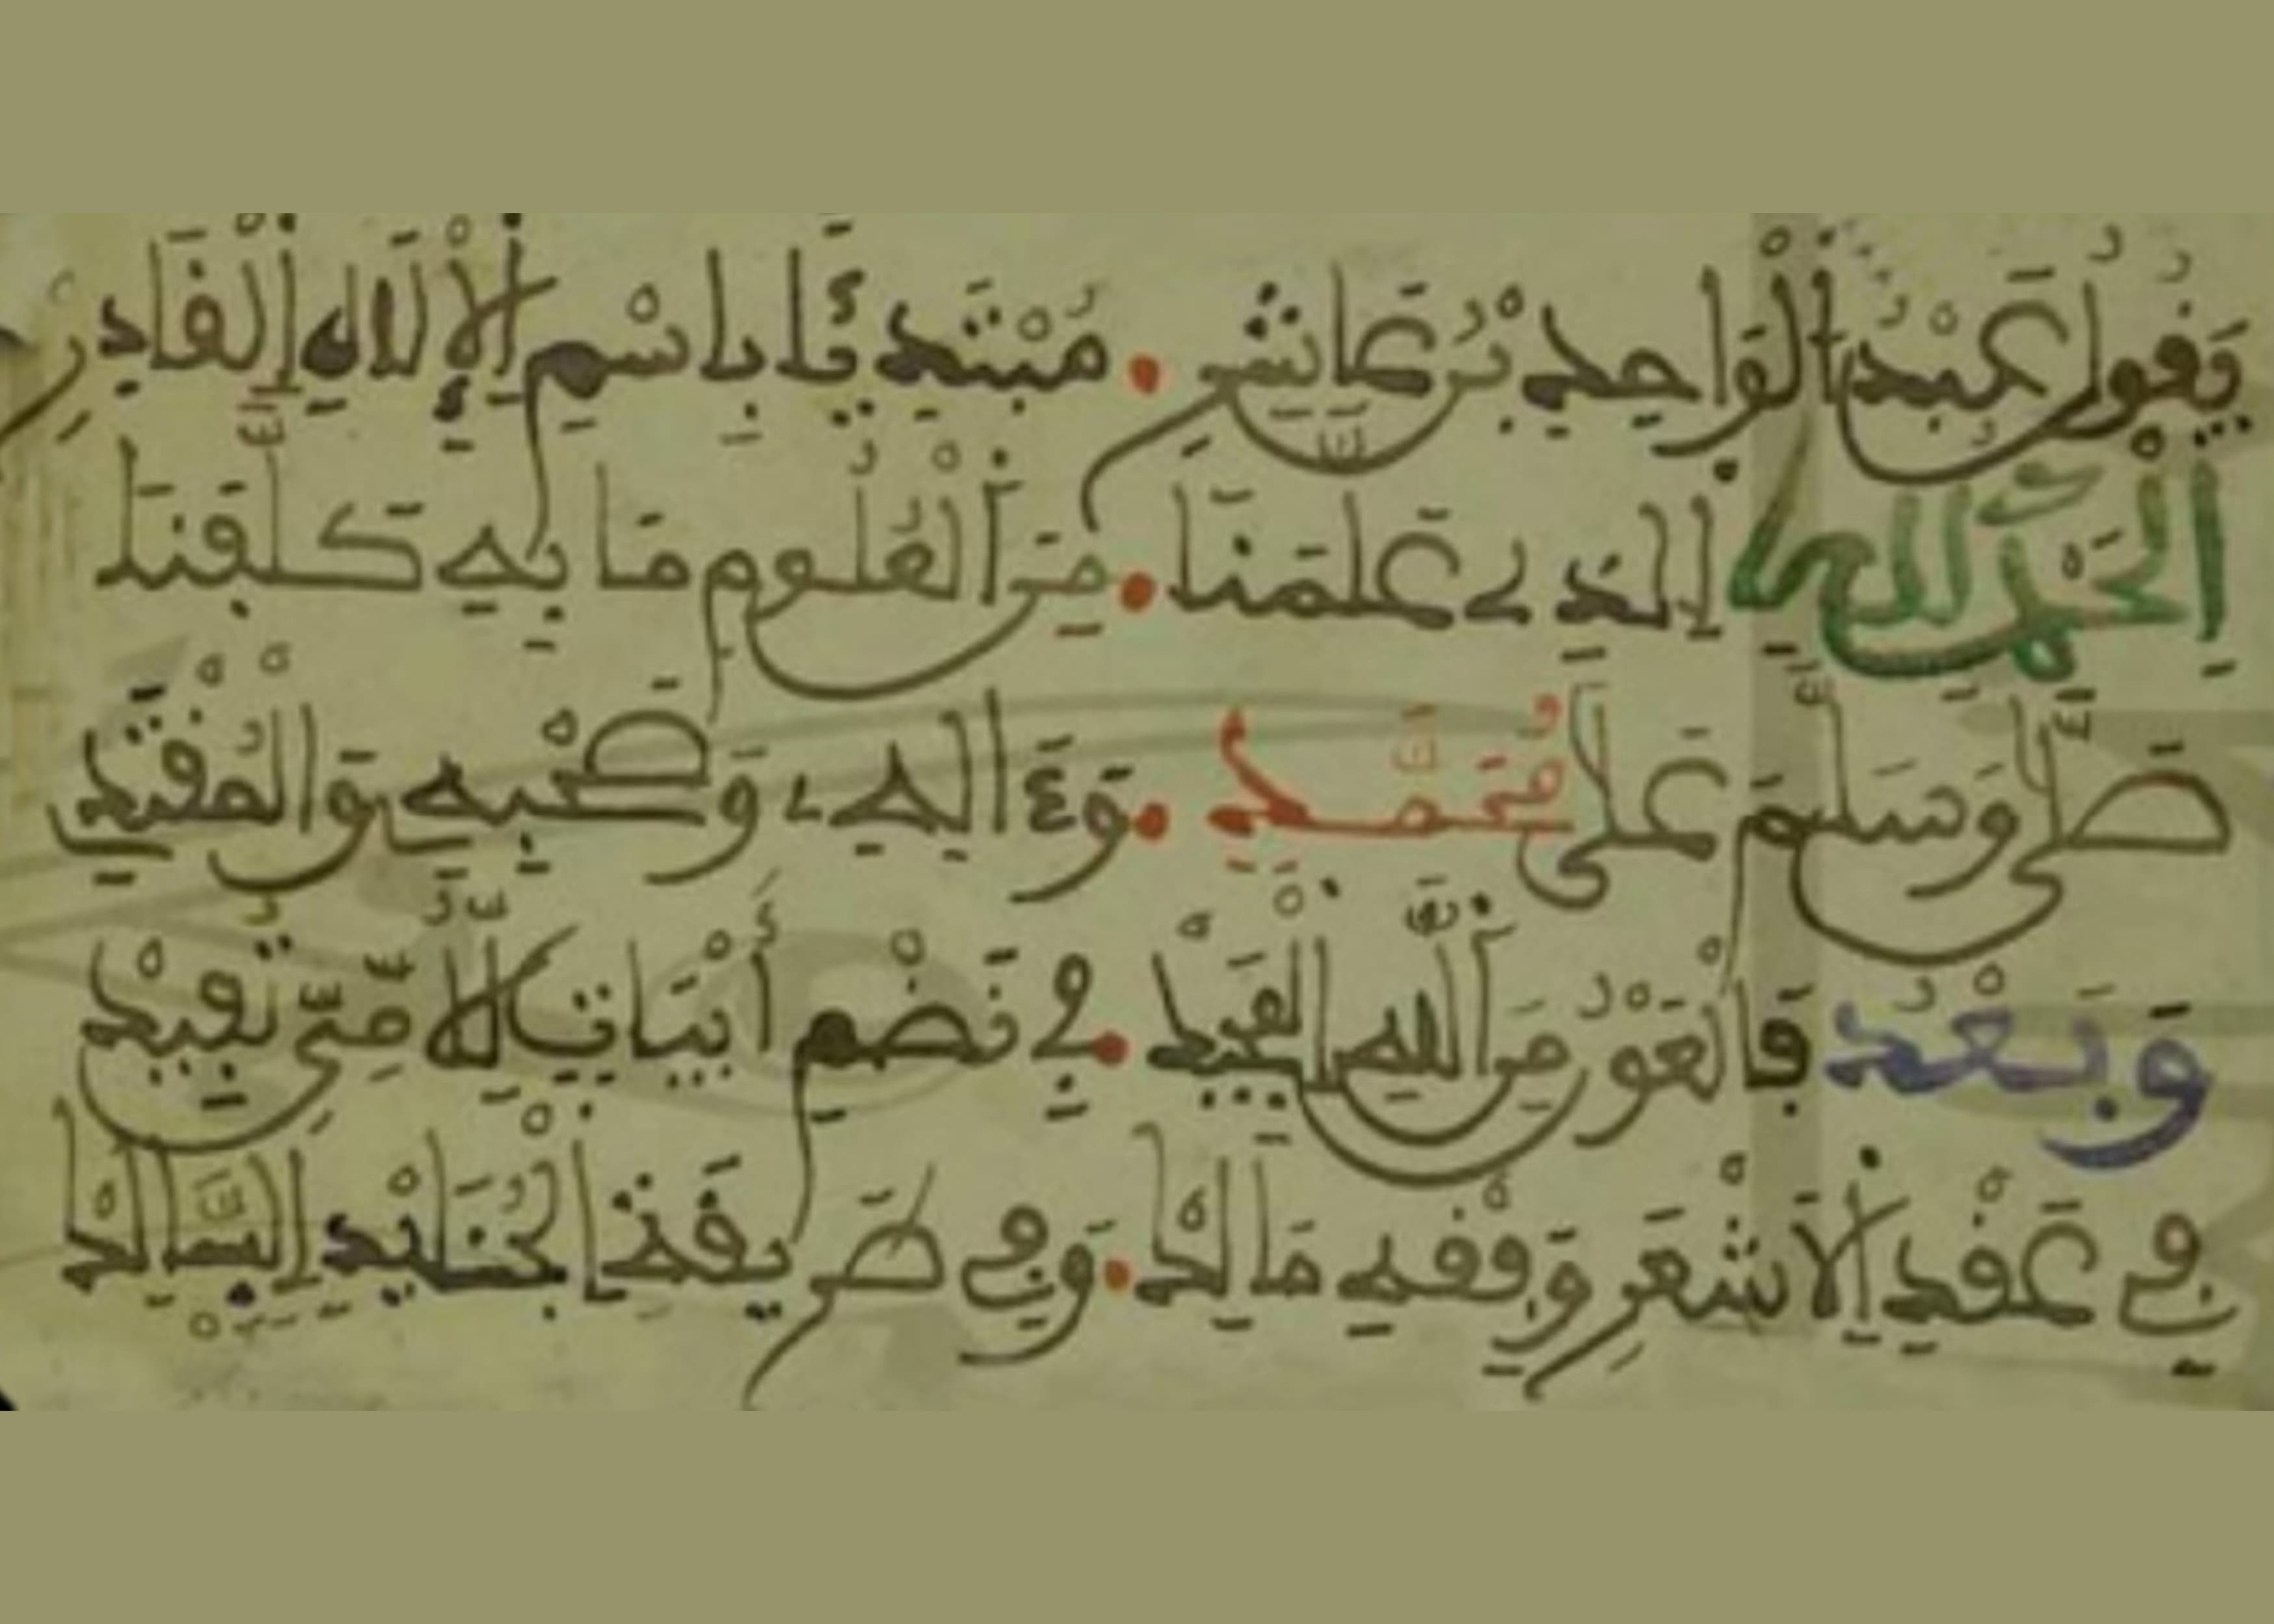 يَقُولُ عَبْدُ الْوَاحِدِ بْنُ عَاشِرِ . مُبْتَدِئًا بِاسْمِ الْإِلَٰهِ الْقَادِرِ
اَلْحَمْدُ لِلهِ اِلذِے عَلَّمَنَا . مِنَ اَلْعُلُومِ مَا بِهِ كَلَّفَنَا
صَلَّى وَسَلَّمَ عَلَى مُحَمَّدِ . وَءَالِهِ وَصَحْبِهِ وَالْمُقْتَدِي
وَبَعْدُ فَالْعَوْنُ مِنَ اَللَّهِ الْمَجِيدْ . فِي نَظْمِ أَبْيَاتٍ لِلْأُمِّيِّ تُفِيدْ
فِي عَقْدِ الْأَشْعَرِ وَفِقْهِ مَالِكْ . وَفِي طَرِيقَةِ اِلْجُنَيْدِ اِلسَّالِكْ